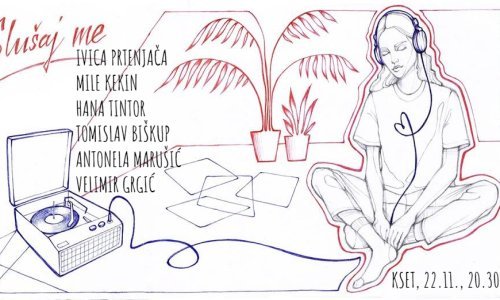 Slušaj me
IVICA PRTENJAČA
MILE KEKIN
HANA TINTOR
TOMISLAV BIŠKUP
ANTONELA MARUŠIĆ
VELIMIR GRGIĆ
KSET, 22.11., 20.30